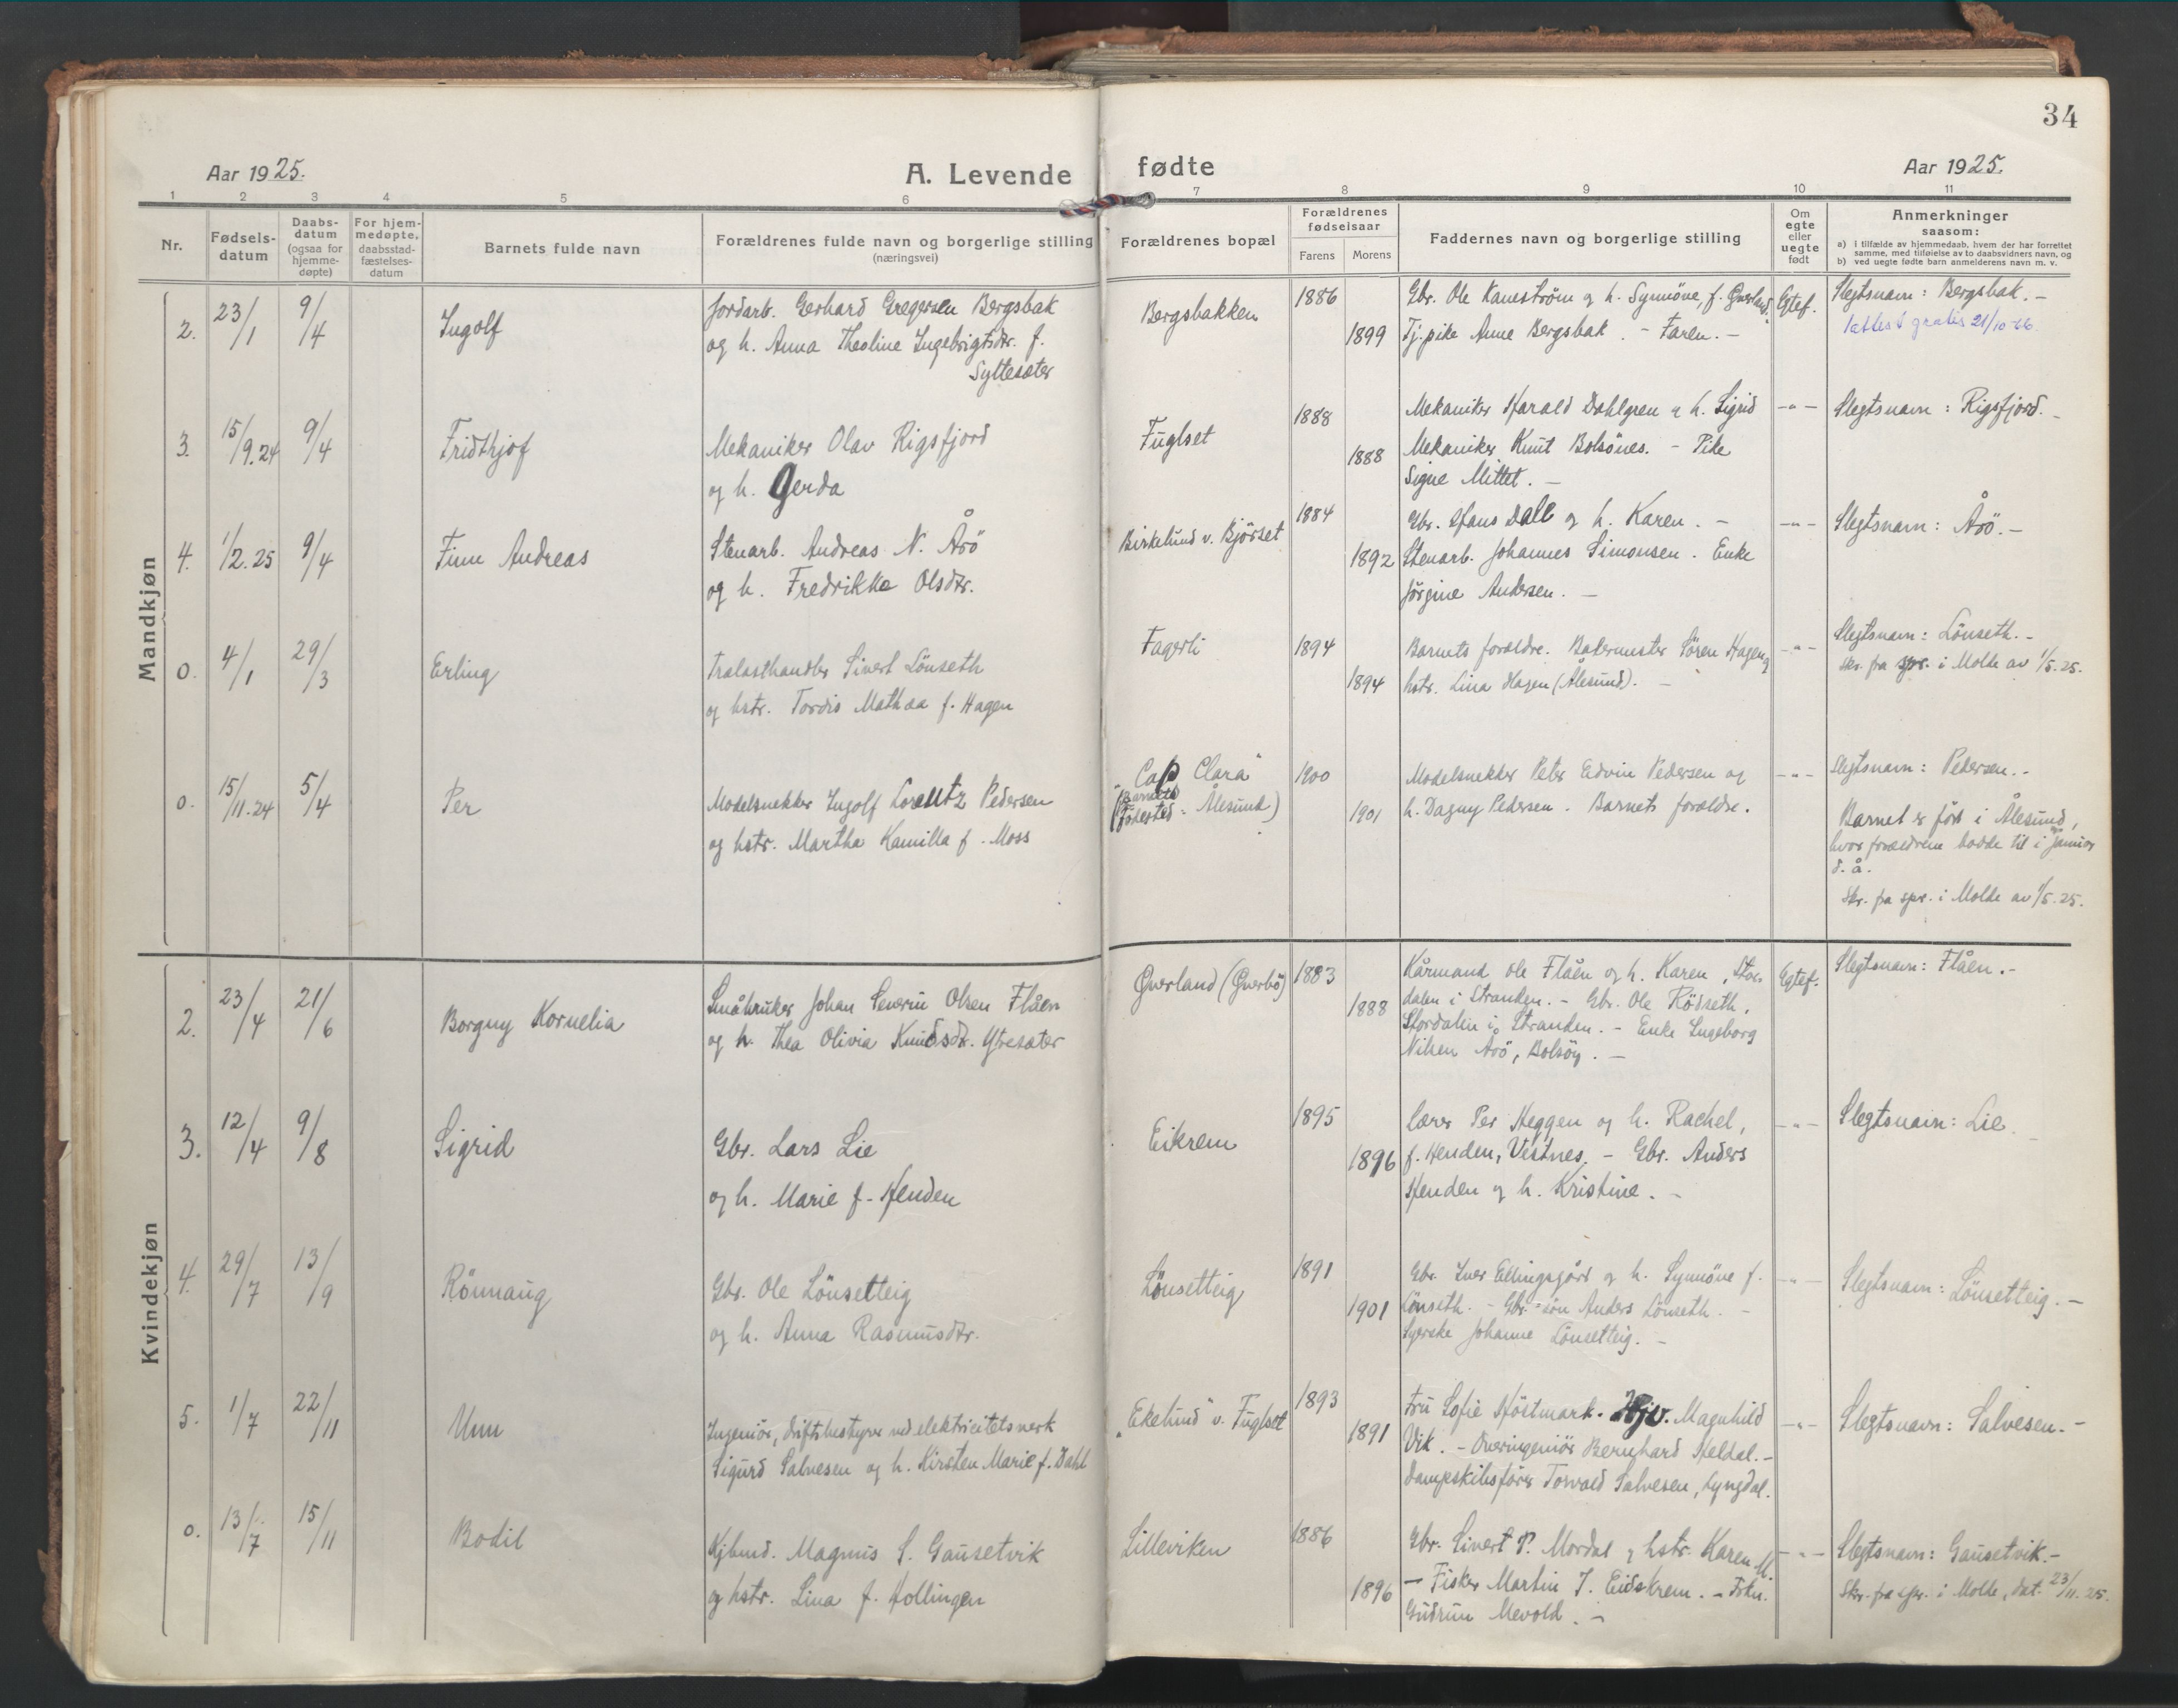 34
Aar 1925.
A. Levende fødte
Aar 1925.
1 2 3 4 5 6 7 8 9 10 11
Nr.
Fødsels-
datum
Daabs-
datum
(ogsaa for
hjemme-
døpte)
For hjem-
medøpte,
daabsstad-
fæstelses-
datum
Barnets fulde navn
Forældrenes fulde navn og borgerlige stilling
(næringsvei)
Forældrenes bopæl
Forældrenes
fødselsaar
Farens Morens
Faddernes navn og borgerlige stilling
Om
egte
eller
uegte
født
Anmerkninger
saasom:
a) i tilfælde av hjemmedaab, hvem der har forrettet
samme, med tilføielse av to daabsvidners navn, og
b) ved uegte fødte barn anmelderens navn m. v.
Mandkjøn
2. 23/1 9/4 Ingolf
Jordarb. Gerhard Gregersen Bergsbak
og h. Anna Theoline Ingebrigtsdtr. f.
Syltesæter
Bergsbakken
1886
1899
Gbr. Ole Kanestrøm og h. Synnöve, f. Gverland.
Tj.pike Anne Bergsbak. - Faren. -
Egtef.
Slegtsnavn: Bergsbak. -
lattest gratis 21/10-66.
3. 15/9.24 9/4 Fridthjof
Mekaniker Olav Rigsfjord
og h. Gerda
Fuglset
1888
1888
Mekaniker Harald Dahlgren og h. Sigrid
Mekaniker Knut Bolsönes. - Pike
Signe Mittet. -
-"-
Slegtsnavn: Rigsfjord. -
4. 1/2.25 9/4 Finn Andreas
Stenarb. Andreas N. Årö
og h. Fredrikke Olsdtr.
Birkelund v. Bjørset
1884
1892
Gbr. Hans Dall og h. Karen. -
Stenarb. Johannes Simonsen. Enke
Jörgine Andersen. -
-"-
Slegtsnavn: Årö. -
0. 4/1 29/3 Erling
Trælasthandler Sivert Lönseth
og hstr. Tordis Mathea f. Hagen
Fagerli
1894
1894
Barnets forældre. Bakermester Sören Hagen og
hstr. Lina Hagen (Ålesund). -
-"-
Slegtsnavn: Lönseth. -
Skr. fra spr. i Molde av 1/5.25.
0. 15/11.24 5/4 Per
Modelsnekker Ingolf Lorentz Pedersen
og hstr. Martha Kamilla f. Moss
"Cap Clara"
(Barnets
Födested: Ålesund)
1900
1901
Modelsnekker Peter Edvin Pedersen og
h. Dagny Pedersen. Barnets forældre.
-"-
Slegtsnavn: Pedersen. -
Barnet er født i Ålesund,
hvor forældrene bodde til i januar
d. å.
Skr. fra spr. i Molde av 1/5.25.
Kvindekjøn
2. 23/4 21/6 Borgny Kornelia
Småbruker Johan Severin Olsen Flåen
og h. Thea Olivia Knudsdtr. Ytresæter
Gverland (Gverbö)
1883
1888
Kårmand Ole Flåen og h. Karen, Stor-
dalen i Stranden. - Gbr. Ole Rödseth,
Stordalen i Stranden. - Enke Ingeborg
Nilsen Årö, Bolsöy. -
Egtef.
Slegtsnavn: Flåen. -
3. 12/4 9/8 Sigrid
Gbr. Lars Lie
og h. Marie f. Henden
Eikrem
1895
1896
Lærer Per Heggen og h. Rachel,
f. Henden, Vestnes. - Gbr. Anders
Henden og h. Kristine. -
-"-
Slegtsnavn: Lie. -
4. 29/7 13/9 Rönnaug
Gbr. Ole Lönsetteig
og h. Anna Rasmusdtr.
Lönsetteig
1891
1901
Gbr. Iver Ellingsgård og h. Synnöve f.
Lönseth. - Gbr.-sön Anders Lönseth. -
Syerske Johanne Lönsetteig. -
-"-
Slegtsnavn: Lönsetteig. -
5. 1/7 22/11 Unn
Ingeniör, driftsbestyrer ved elektricitetsverk
Sigurd Salvesen og h. Kirsten Marie f. Dahl
"Ekelund" v. Fuglset
1893
1891
Fru Sofie Höstmark. Hjv. Magnhild
Vik. - Overingeniör Bernhard Heldal. -
Dampskibsförer Torvald Salvesen, Lyngdal.
-"-
Slegtsnavn: Salvesen. -
0. 13/7 15/11 Bodil
Kjbmd. Magnus S. Gausetvik
og hstr. Lina f. Hollingen
Lilleviken
1886
1896
Gbr. Sivert P. Mordal og hstr. Karen M.
- Fisker Martin J. Eidskrem. - Frkn.
Gudrun Mevold. -
-"-
Slegtsnavn: Gausetvik. -
Skr. fra spr. i Molde, dat. 23/11.25.